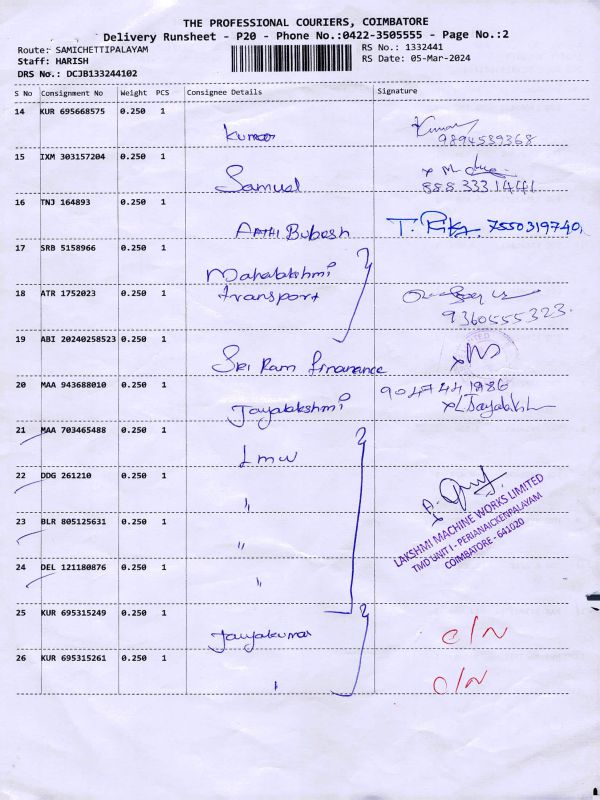 THE PROFESSIONAL COURIERS, COIMBATORE
Delivery Runsheet - P20 - Phone No.:0422-3505555 - Page No.:2
Route: SAMICHETTIPALAYAM
RS No.: 1332441
Staff: HARISH
RS Date: 05-Mar-2024
DRS No.: DCJB133244102
S No Consignment No Weight PCS Consignee Details Signature
14 KUR 695668575 0.250 1
Kumar
9894539368
15 IXM 303157204 0.250 1
Samual
888 333 1441
16 TNJ 164893 0.250 1
AATHI Bubesh
7550319740
17 SRB 5158966 0.250 1
Mahalakshmi
18 ATR 1752023 0.250 1
transport
9360555323
19 ABI 20240258523 0.250 1
Sri Ram finanance
20 MAA 943688010 0.250 1
9047441986
Jayalakshmi
21 MAA 703465488 0.250 1
Lmw
22 DDG 261210 0.250 1
"
LAKSHMI MACHINE WORKS LIMITED
TMD UNIT I - PERIANAICKENPALAYAM
COIMBATORE - 641020
23 BLR 805125631 0.250 1
"
24 DEL 121180876 0.250 1
"
25 KUR 695315249 0.250 1
Jayakumar
C/N
26 KUR 695315261 0.250 1
C/N